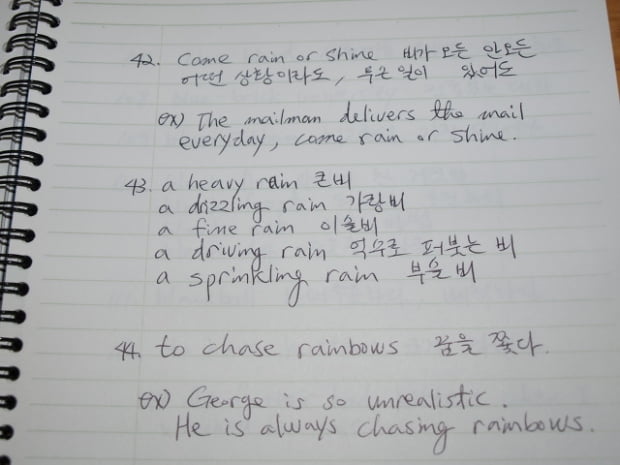 42. Come rain or shine 비가 오든 안오든
어떤 상황이라도, 무슨 일이 있어도
ex) The mailman delivers the mail
everyday, come rain or shine.
43. a heavy rain 큰비
a drizzling rain 가랑비
a fine rain 이슬비
a driving rain 억수로 퍼붓는 비
a sprinkling rain 부슬비
44. to chase rainbows 꿈을 쫓다.
ex) George is so unrealistic.
He is always chasing rainbows.